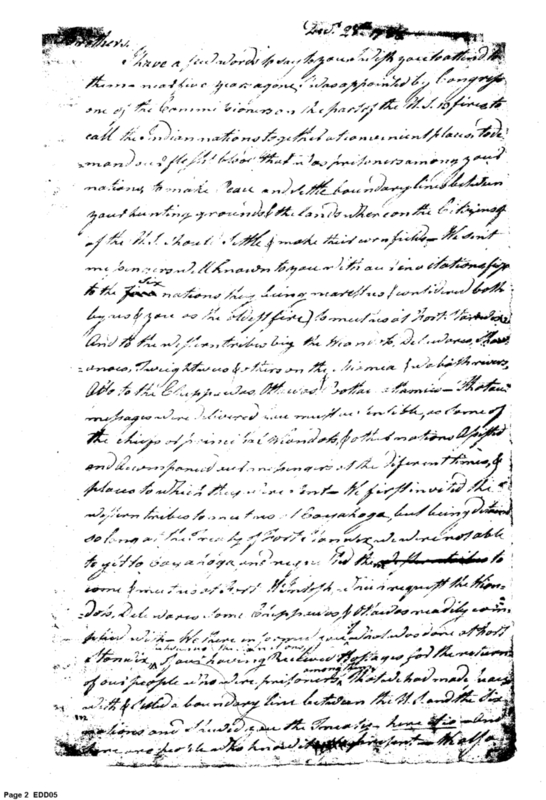 Decr. 28th 17
Brothers
I have a few words to say to you wish you to attend to
them near five years agone I was appointed by Congress
one of the Commissioners on the part of the U.S. to fires to
call the Indian nations together at convenient places, to de
mand our flesh & blood that was prisoners among your
nations, to make Peace and settle boundary lines between
your hunting grounds & the lands whereon the Citizens
of the U.S. should settle & make their cornfields — We sent
messengers well known to you with our invitations first
to the Six nations they being nearest us & considered both
by us & you as the oldest fire) to meet us at Fort Stanwix
And to the western tribes the Wiandots, Delawares, Shaw
anoes, Twightwees & others on the Miamia & Wabash rivers,
Also to the Chippewas, Ottawas & Pottawattamies — That our
messages were delivered you must be sensible, as some of
the chiefs of the Wiandots, & other nations assisted
and accompanied our messengers at the diferent times, &
places to which they were sent — We first invited the
western tribes to meet us at Cayahoga, but being detained
so long at the Treaty of Fort Stanwix, we were not able
to git to Cayahoga, and requested them to
come & meet us at Fort McIntosh, This request the Wian
dots, Delawares some Chippewas & Ottawas readily com
plied with — We there informed you of what was done at Fort
Stanwix of our having Received Hostages for the return
of our people who were prisoners among them, That we had made peace
with & settled a boundary line between the U.S. and the Six
nations and shewed you the Treaty here it is — and
here are people who know it present — that
Page 2 EDD05